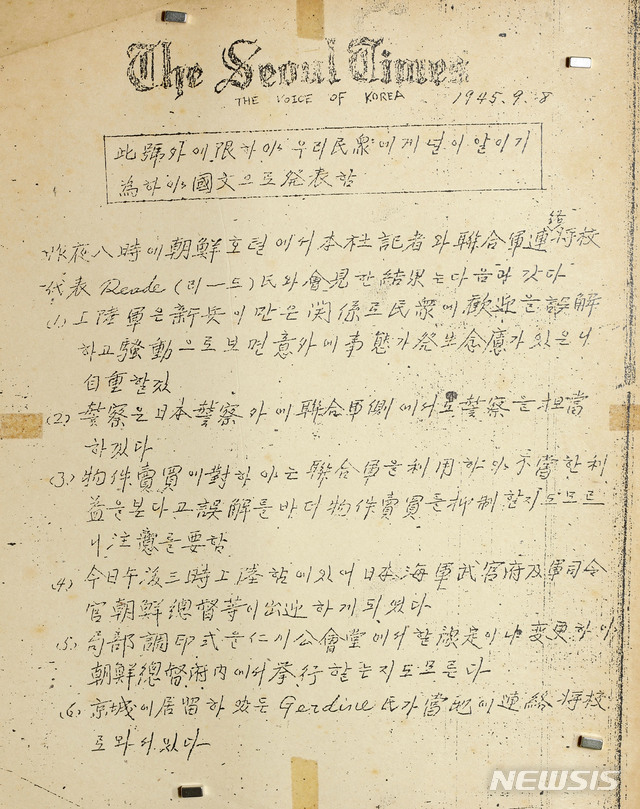 The Seoul Times
THE VOICE OF KOREA 1945.9.8
此號외에限하야우리民衆에게널이알이기
為하야國文으로発表함
昨夜八時에朝鮮호텔에서本社記者와聯合軍連絡将校
代表Reade(리ー드)氏와會見한結果는다음과갓다
(1) 上陸軍은新兵이만은関係로民衆에歡迎을誤解
하고騷動으로보면意外에事態가発生念慮가있은니
自重할것
(2) 警察은日本警察外에聯合軍側에서도警察을担當
하겠다
(3) 物件賣買에對하야는聯合軍을利用하야不當한利
益을본다고誤解를바더物件賣買를抑制할지도모르
니注意를要함
(4) 今日午後三時上陸함에있어日本海軍武官府及軍司令
官朝鮮總督等이出迎하게되었다
(5) 局部調印式은仁川公會堂에서할決定이나変更하야
朝鮮總督府内에서挙行할는지도모른다
(6) 京城에居留하였든Gerdine氏가當地에連絡将校
로와서있다
NEWSIS